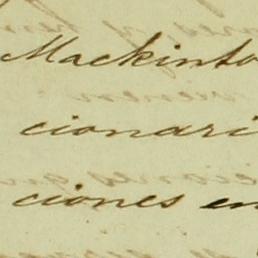 Mackinto
cionari
ciones en